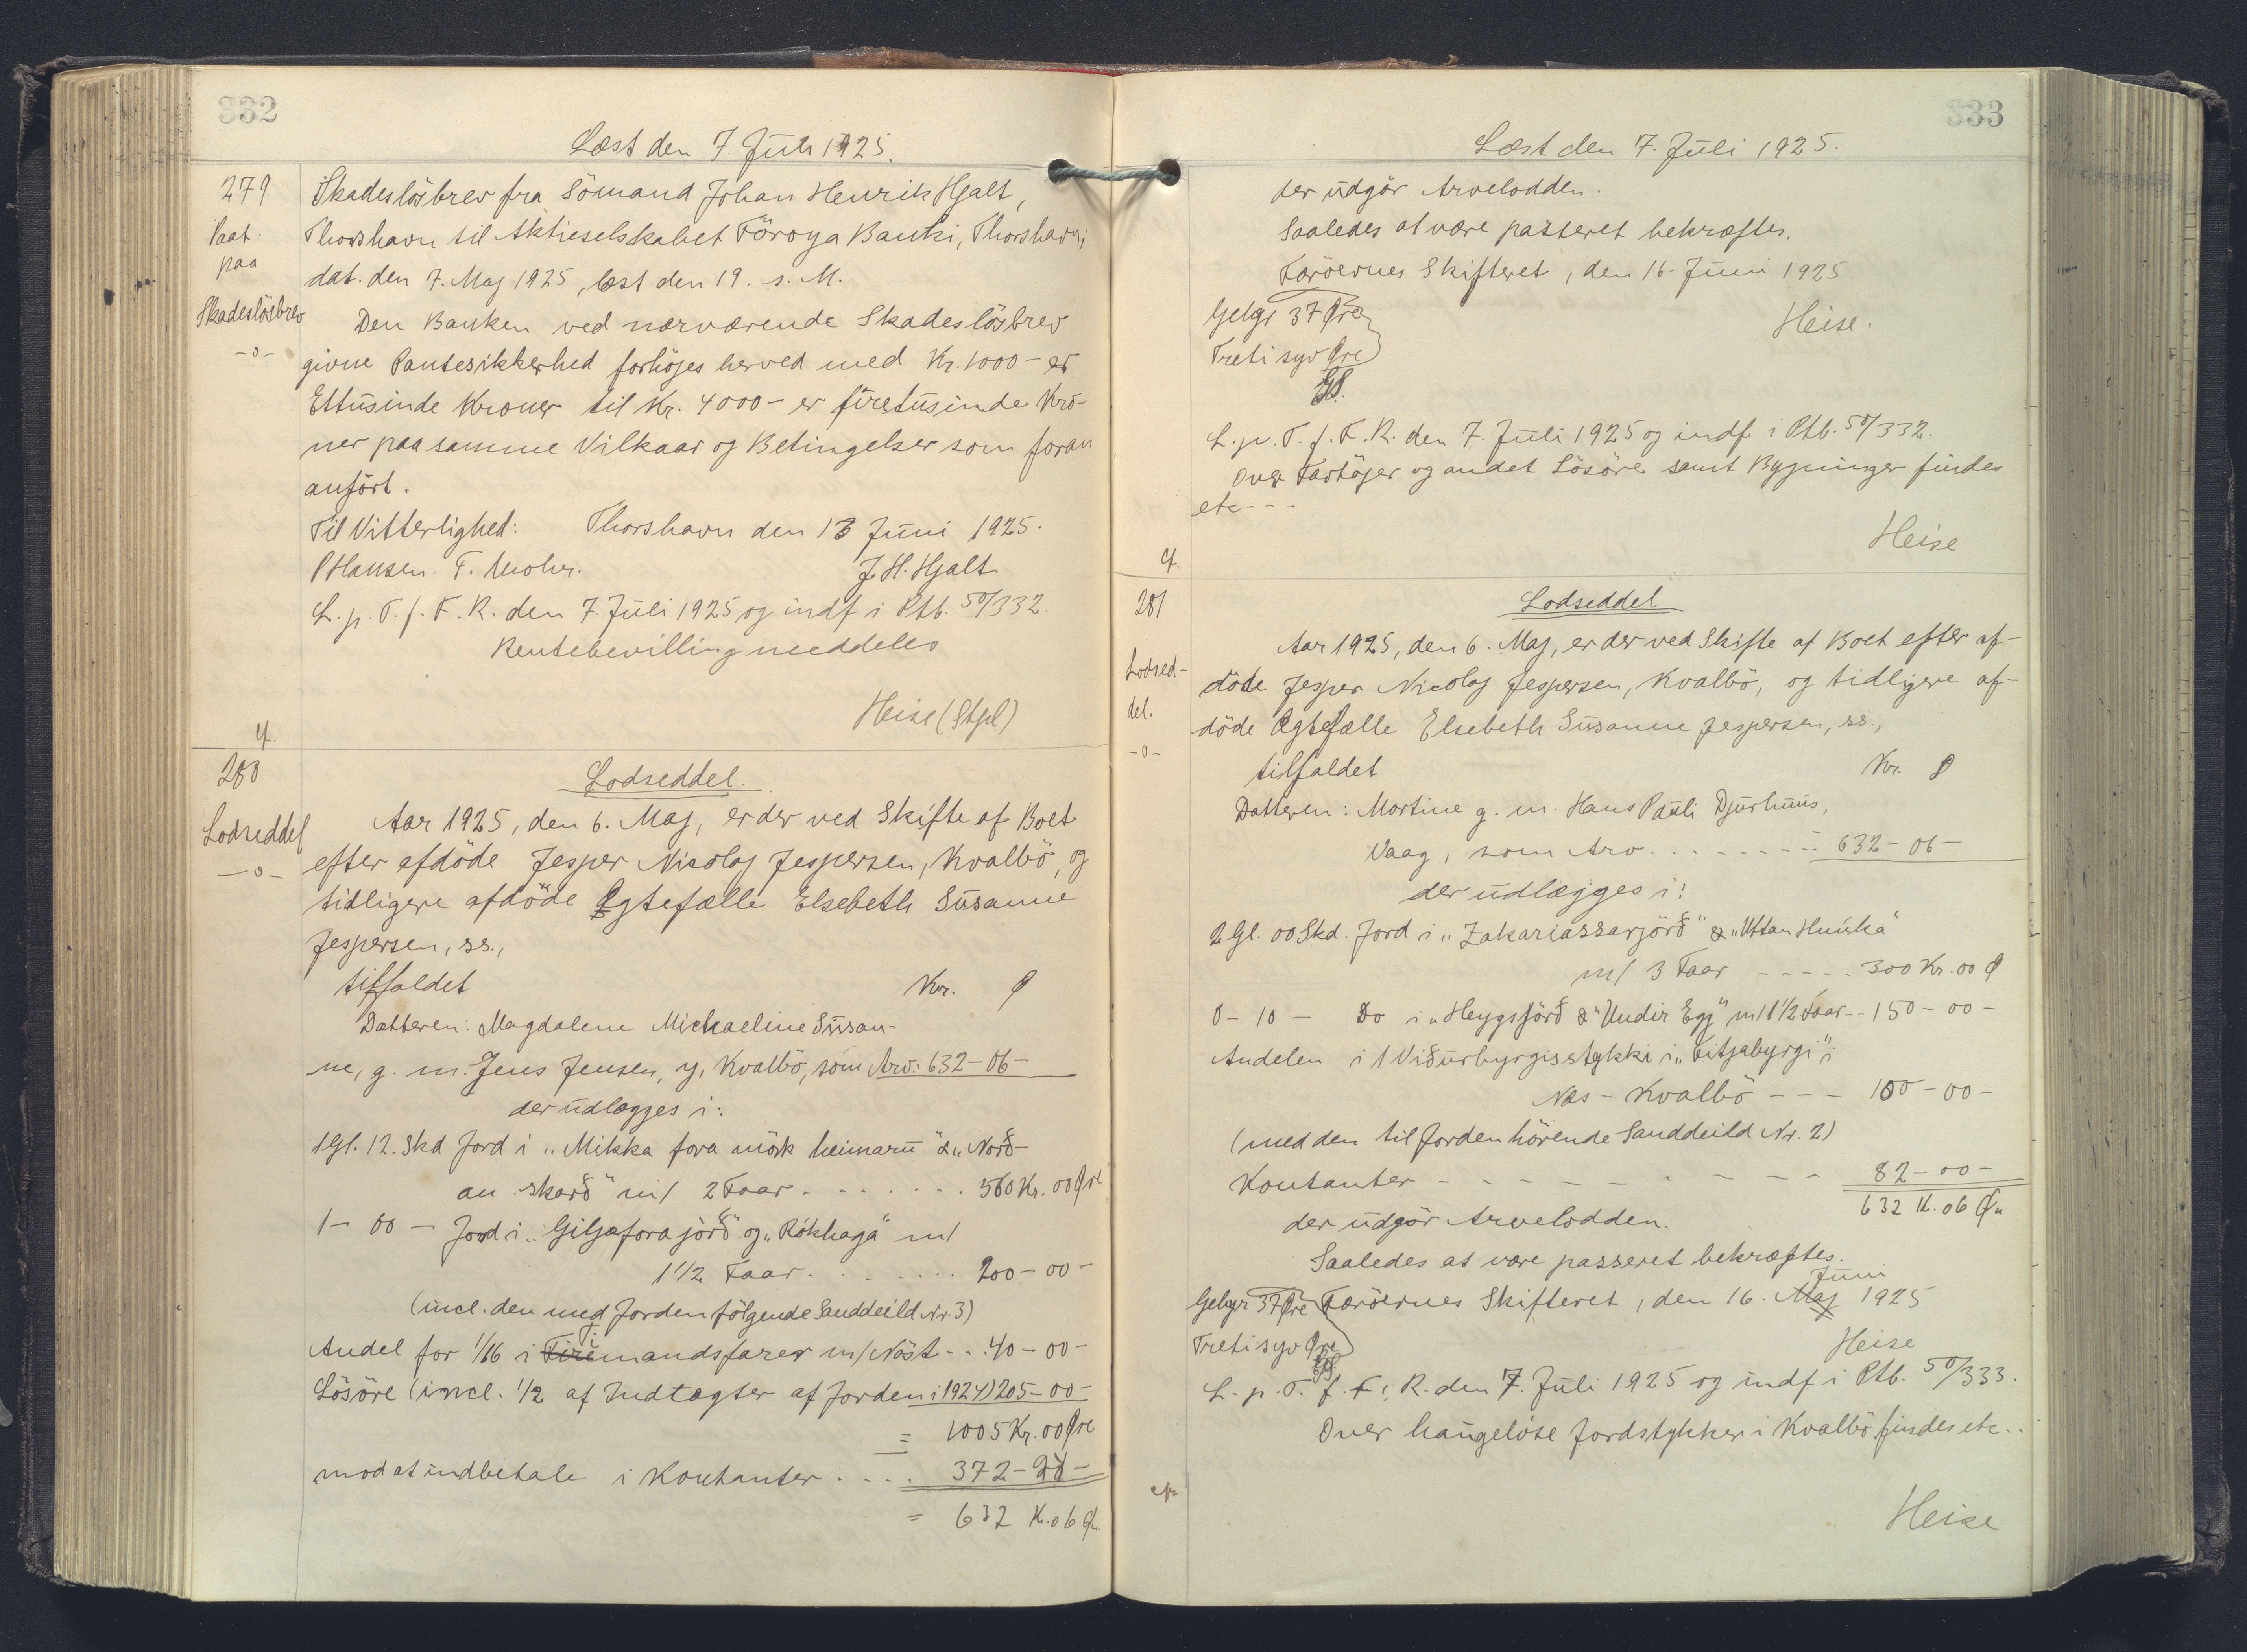 332
Læst den 7. Juli 1925.
279
Paat.
paa
Skadeslösbrev
-o-
Skadeslösbrev fra Sömand Johan Henrik Hjalt,
Thorshavn til Aktieselskabet Föroya Banki, Thorshavn,
dat. den 7. Maj 1925, læst den 19. s. M.
Den Banken ved nærværende Skadeslösbrev
givne Pantesikkerhed forhöjes herved med Kr. 1000 - er
Ettusinde Kroner til Kr. 4000 - er firetusinde Kro-
ner paa samme Vilkaar og Betingelser som foran
anfört.
Til Vitterlighed: Thorshavn den 13 Juni 1925.
P Hansen. F. Mohr. J. H. Hjalt
L. p. T. f. F. R. den 7. Juli 1925 og indf i Ptb. 50/332.
Rentebevilling meddeles
Heise (Stpl)
cf.
280
Lodseddel
-o-
Lodseddel.
Aar 1925, den 6. Maj, er der ved Skifte af Boet
efter afdöde Jesper Nicolaj Jespersen, Kvalbö, og
tidligere afdöde Ægtefælle Elsebeth Susanne
Jespersen, ss.,
tilfaldet Kr. Ø
Datteren: Magdalene Michaeline Susan-
ne, g. m. Jens Jensen, y, Kvalbö, som Arv: 632 - 06 -
der udlægges i:
1 Gl. 12. Skd Jord i "Mikka fora mörk heimaru" & "Norð-
an skarð" m/ 2 Faar - - - - - - - 560 Kr. 00 Øre
1 - 00 - Jord i "Giljafora jörð" og "Rókhaga" m/
1 1/2 Faar . . . . . . . 200 - 00 -
(incl. den med Jorden fölgende Sanddeild Nr. 3)
Andel for 1/16 i Ti Firemandsfarer m/ Nöst - - . 40 - 00 -
Lösöre (incl. 1/2 af Indtægter af Jorden i 1924) 205 - 00 -
= 1005 Kr. 00 Øre
mod at indbetale i Kontanter . . . . 372 - 94 -
= 632 Kr. 06 Ør
333
Læst den 7. Juli 1925.
der udgör Arvelodden.
Saaledes at være passeret bekræftes.
Færöernes Skifteret, den 16. Juni 1925
Gebyr 37 Øre
Heise.
Tretisyv Øre
L. p. T. f. F. R. den 7. Juli 1925 og indf i Ptb. 50/332.
Over Fartöjer og andet Lösöre samt Bygninger findes
etc - - -
Heise
cf.
281
Lodsed-
del.
-o-
Lodseddel
Aar 1925, den 6. Maj, er der ved Skifte af Boet efter af-
döde Jesper Nicolaj Jespersen, Kvalbö, og tidligere af-
döde Ægtefælle Elsebeth Susanne Jespersen, ss.,
tilfaldet Kr. Ø
Datteren: Mortine g. m. Hans Pauli Djurhuus,
Vaag, som Arv . . . . . . . . . 632 - 06 -
der udlægges i:
2 Gl. 00 Skd. Jord i "Zakariassarjörð" & "Uttan Húska"
m/ 3 Faar - - - - - 300 Kr. 00 Ø
0 - 10 - Do i "Heygsjörð & "Undir Egg" m/ 1 1/2 Faar - - 150 - 00 -
Andelen i 1 Viðurbyrgisstykki i "Fitjabyrgi" i
Næs - Kvalbö - - - 100 - 00 -
(med den til Jorden hörende Sanddeild Nr. 2)
Kontanter - - - - - - - - - 82 - 00 -
632 Kr. 06 Ør
der udgör Arvelodden.
Saaledes at være passeret bekræftes.
Juni
Gebyr 37 Øre Færöernes Skifteret, den 16. Maj 1925
Tretisyv Øre
Heise
L. p. T. f. F. R. den 7. Juli 1925 og indf i Ptb. 50/333.
Over haugelöse Jordstykker i Kvalbö findes etc. .
cf.
Heise